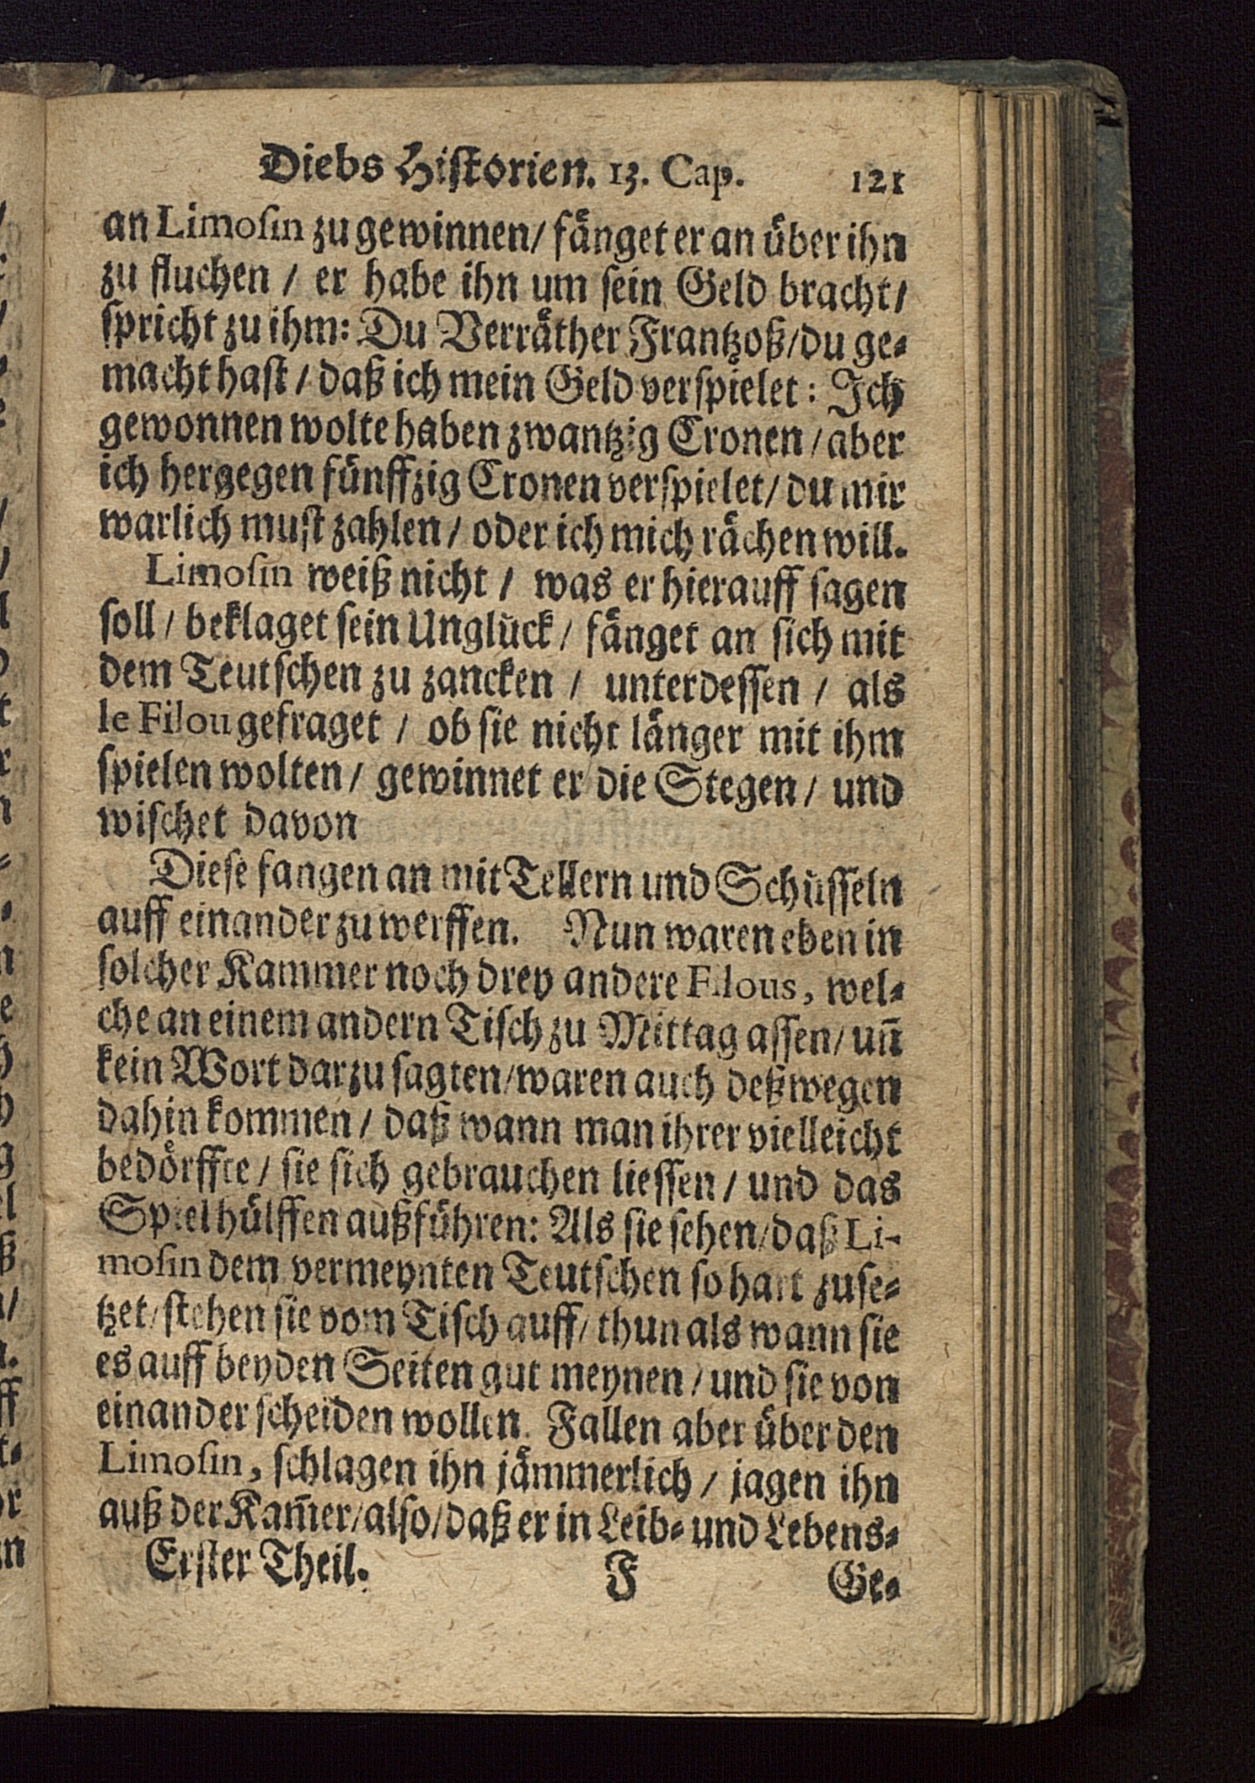 Diebs Historien. 13. Cap. 121
an Limosin zu gewinnen/ fänget er an über ihn
zu fluchen / er habe ihn um sein Geld bracht/
spricht zu ihm: Du Verräther Frantzoß/du ge-
macht hast / daß ich mein Geld verspielet: Ich
gewonnen wolte haben zwantzig Cronen / aber
ich hergegen fünffzig Cronen verspielet/ du mir
warlich must zahlen / oder ich mich rächen will.
Limosin weiß nicht / was er hierauff sagen
soll / beklaget sein Unglück / fänget an sich mit
dem Teutschen zu zancken / unterdessen / als
le Filou gefraget / ob sie nicht länger mit ihm
spielen wolten / gewinnet er die Stegen / und
wischet davon
Diese fangen an mit Tellern und Schüsseln
auff einander zu werffen. Nun waren eben in
solcher Kammer noch drey andere Filous, wel-
che an einem andern Tisch zu Mittag assen/ uñ
kein Wort darzu sagten/waren auch deßwegen
dahin kommen / daß wann man ihrer vielleicht
bedörffte / sie sich gebrauchen liessen / und das
Spiel hülffen außführen: Als sie sehen/daß Li-
mosin dem vermeynten Teutschen so hart zuse-
tzet/stehen sie vom Tisch auff/ thun als wann sie
es auff beyden Seiten gut meynen / und sie von
einander scheiden wollen. Fallen aber über den
Limosin, schlagen ihn jämmerlich / jagen ihn
auß der Kam̃er/also/daß er in Leib- und Lebens-
Erster Theil. F Ge-